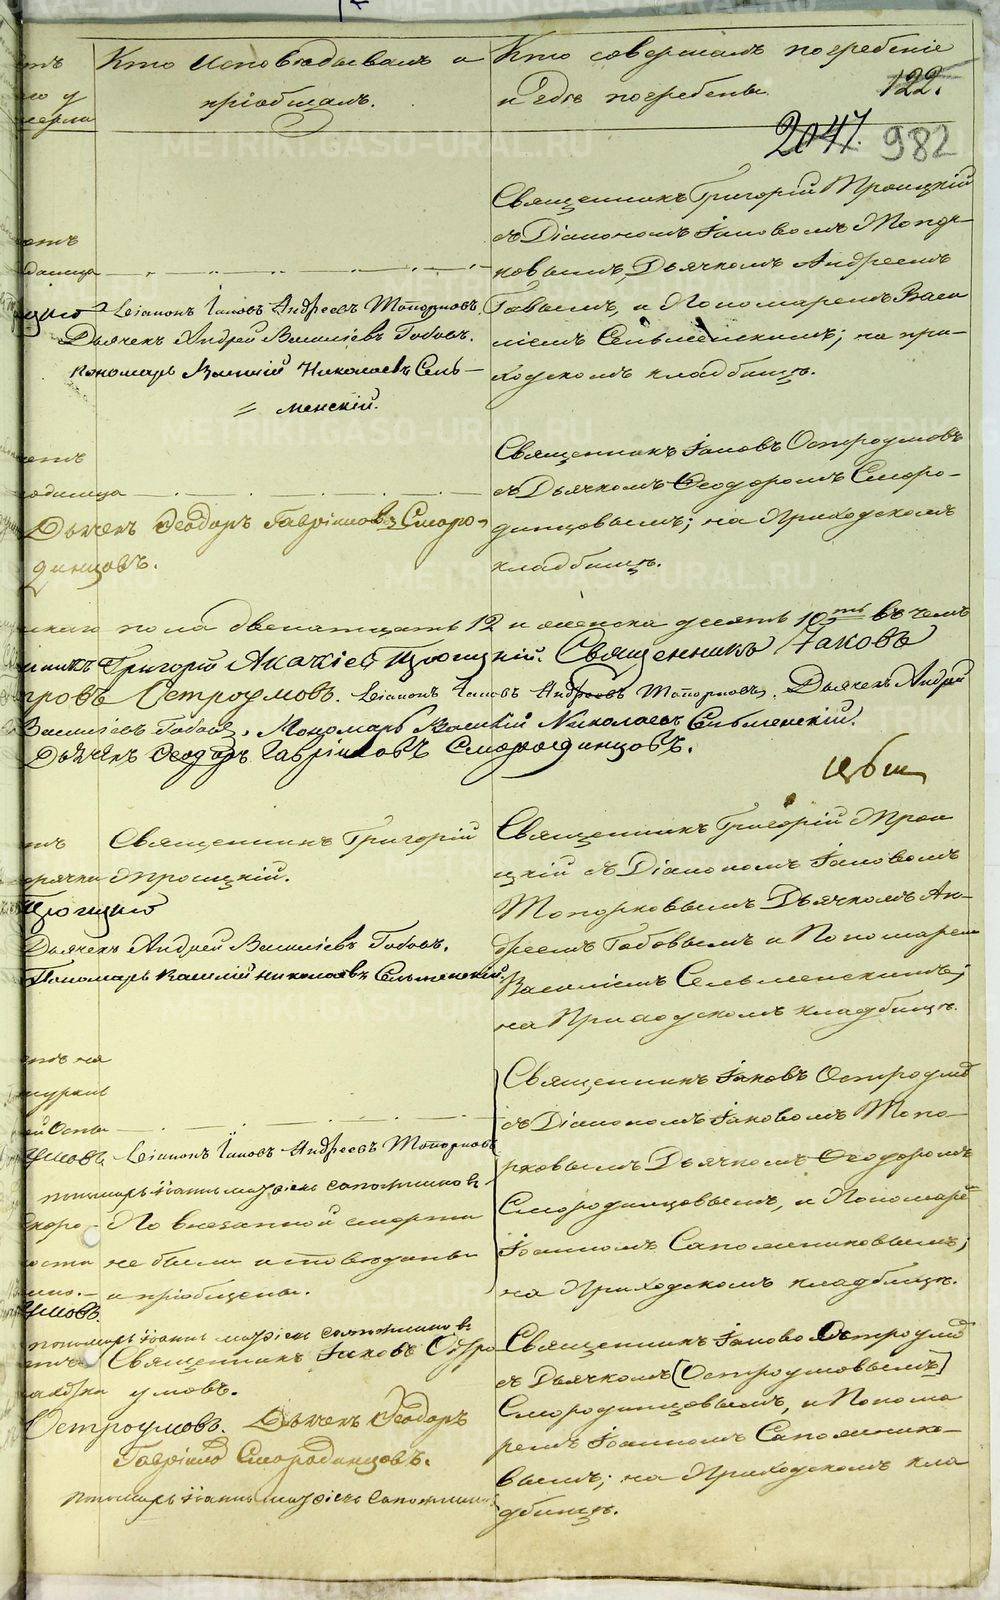 Кто исповѣдывалъ и
пріобщалъ.
Кто совершалъ погребеніе
и гдѣ погребены.
122.
2047. 982
Священникъ Григорій Троицкій
съ Діакономъ Іаковомъ Топор-
ковымъ, Дьячкомъ Андреемъ
Гобовымъ, и Пономаремъ Васи
ліемъ Сельменскимъ; на при-
ходскомъ кладбищѣ.
Діаконъ Іаковъ Андреевъ Топорковъ.
Дьячекъ Андрей Василіевъ Гобовъ.
Пономарь Василій Николаевъ Сель-
менскій.
Священникъ Іаковъ Остроумовъ
съ Дьячкомъ Ѳеодоромъ Сморо-
динцовымъ; на Приходскомъ
кладбищѣ.
Дьячекъ Ѳеодоръ Гавріиловъ Сморо-
динцовъ.
пола двенатцать 12 и женска десять 10ть въ чемъ
Григорій Акакіевъ Троицкій. Священникъ Іаковъ
Остроумовъ. Діаконъ Іаковъ Андреевъ Топорковъ. Дьячекъ Андрей
Василіевъ Гобовъ, Пономарь Василій Николаевъ Сельменскій.
Дьячекъ Ѳеодоръ Гавріиловъ Смородинцовъ.
Священникъ Григорій
Троицкій.
Троицкій
Дьячекъ Андрей Василіевъ Гобовъ.
Пономарь Василій Николаевъ Сельменскій.
Священникъ Григорій Трои
цкій съ Діакономъ Іаковомъ
Топорковымъ Дьячкомъ Ан-
дреемъ Гобовымъ и Пономарем
Василіемъ Сельменскимъ;
на Приходскомъ кладбищѣ.
Діаконъ Іаковъ Андреевъ Топорковъ
пономарь Іоаннъ Сапожниковъ
По внезапной смерти
не были исповѣданы
и пріобщены.
Священникъ Іаковъ Остроумов
съ Діакономъ Іаковомъ Топо-
рковымъ Дьячкомъ Ѳеодоромъ
Смородинцовымъ, и Пономарем
Іоанномъ Сапожниковымъ;
на Приходскомъ кладбищѣ.
пономарь Іоаннъ Сапожниковъ
Священникъ Іаковъ Остро
умовъ.
Остроумовъ. Дьячекъ Ѳеодоръ
Гавріиловъ Смородинцовъ.
пономарь Іоаннъ
Священникъ Іаковъ Остроумов
съ Дьячкомъ [Остроумовымъ]
Смородинцовымъ, и Понома
ремъ Іоанномъ Сапожнико-
вымъ; на Приходскомъ кла
дбищѣ.
METRIKI.GASO-URAL.RU